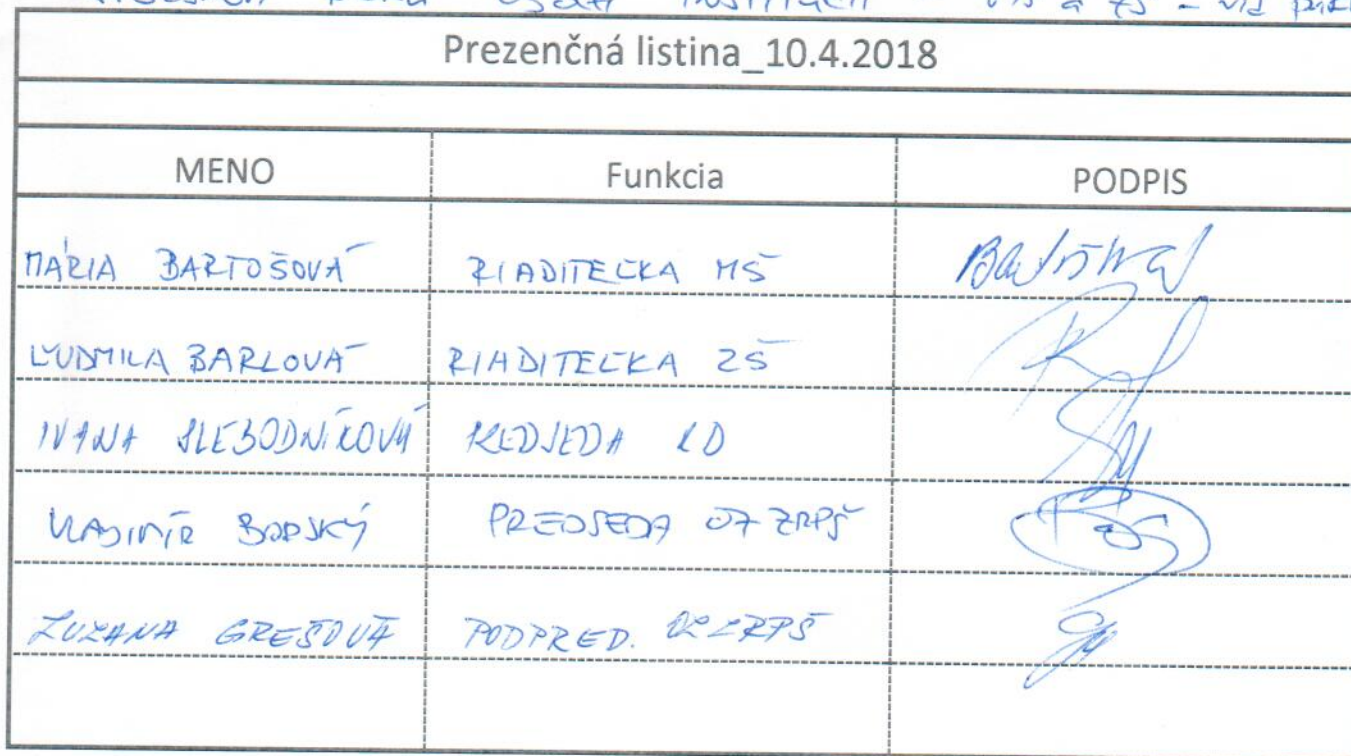 Prezenčná listina_10.4.2018
MENO Funkcia PODPIS
MÁRIA BARTOŠOVÁ RIADITEĽKA MŠ
ĽUDMILA BARLOVÁ RIADITEĽKA ZŠ
IVANA SLEBODNÍKOVÁ
VLADIMÍR BORSKÝ PREDSEDA OZ ZRPŠ
ZUZANA GREŠOVÁ PODPRED. OZ ZRPŠ